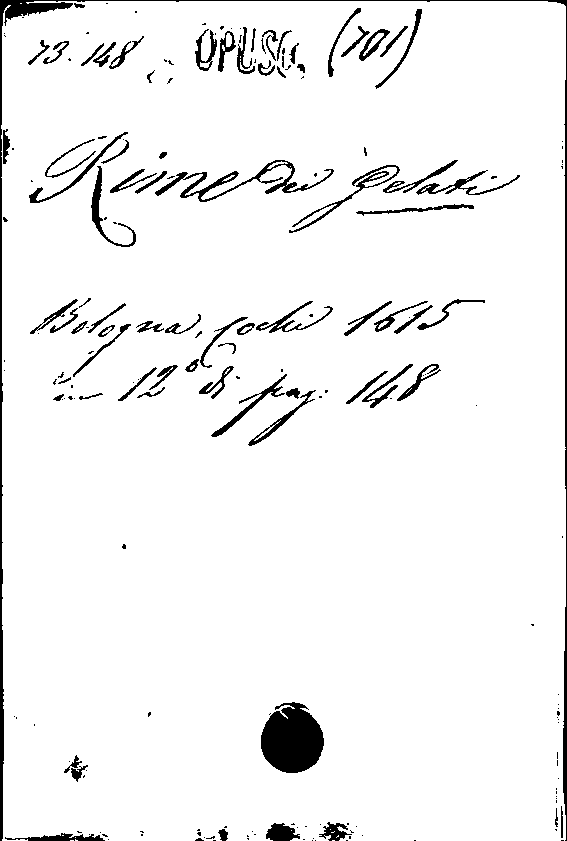 73.148 OPUSC. (701)
Rime dei Gelati
Bologna, Cochi 1615
in 12° di pag: 148